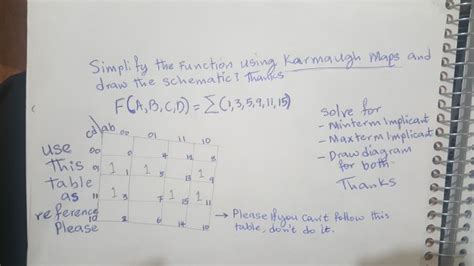 Simplify the Function using Karmaugh Maps and
draw the schematic? Thanks
F(A,B,C,D) = ∑(1,3,5,9,11,15)
solve for
- Minterm Implicant
- Maxterm Implicant
- Draw diagram
for both.
Thanks
use
This
table
as
reference
Please
cd ab 00 01 11 10
00 0 4 12 8
01 1 1 1 5 13 1 9
11 1 3 7 1 15 1 11
10 2 6 14 10
→ Please if you can't follow this
table, don't do it.